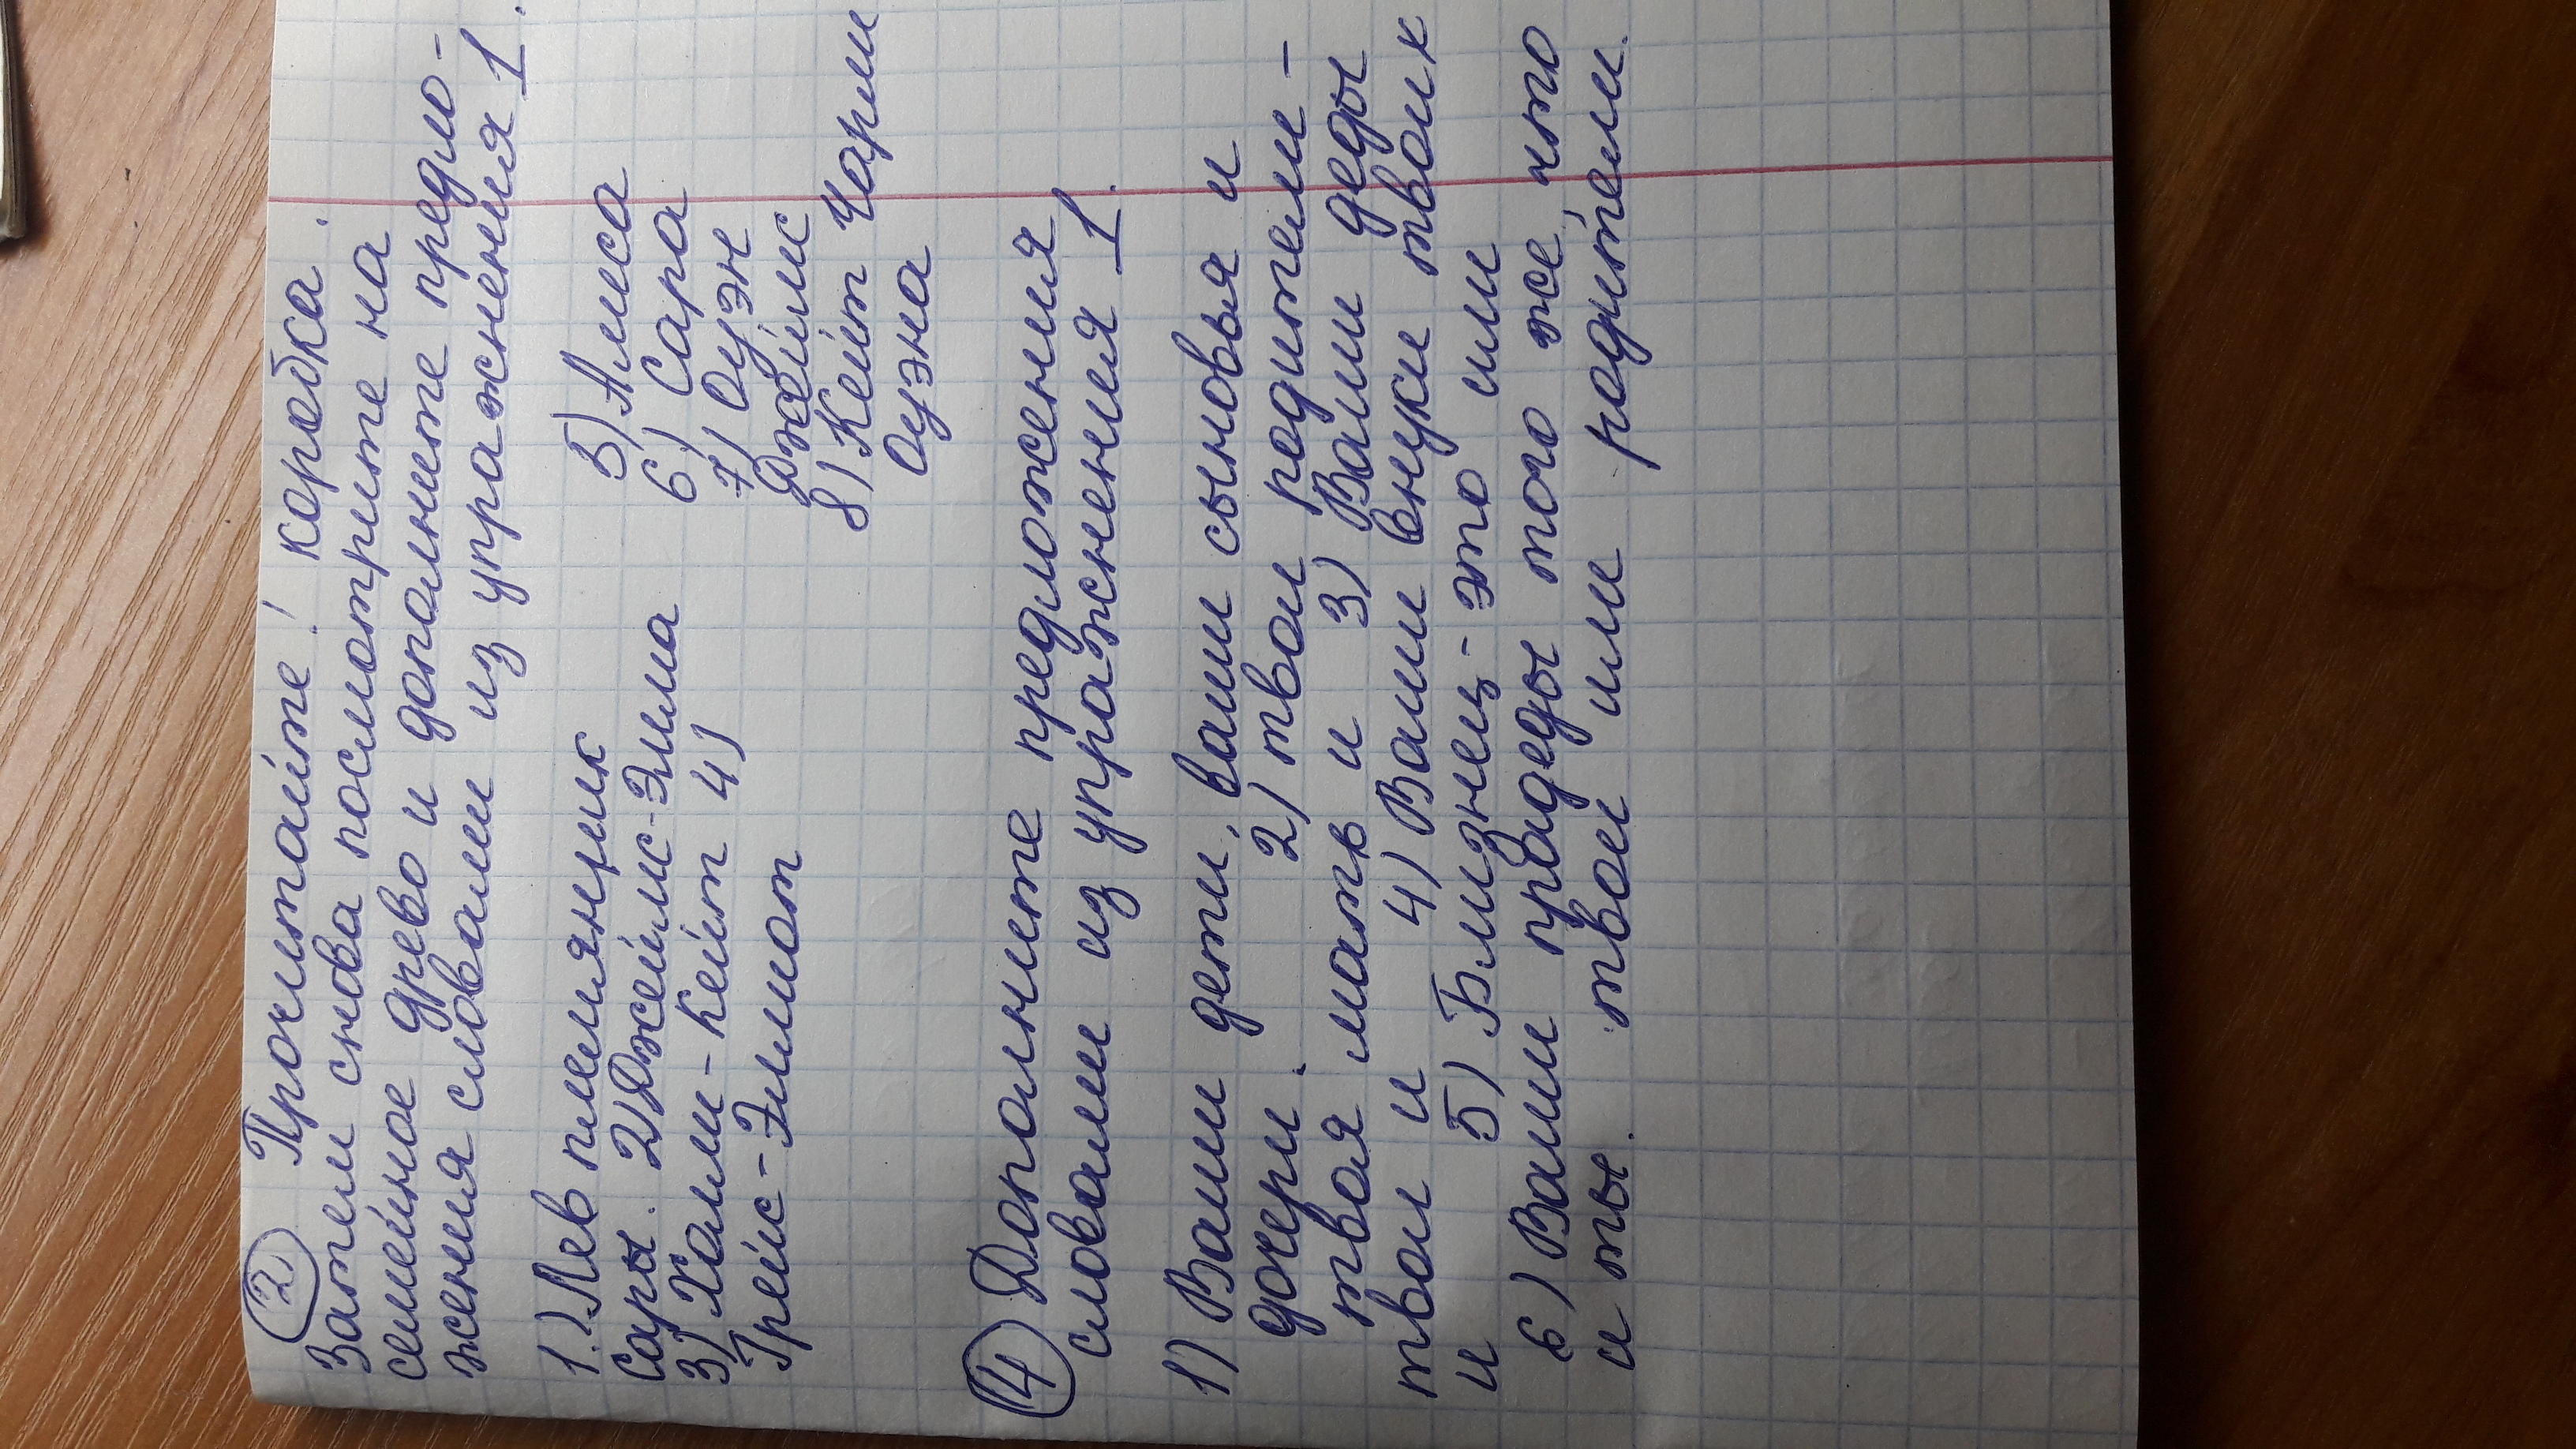 2) Прочитайте! коробка.
Затем снова посмотрите на
семейное древо и дополните предло-
жения словами из упражнения 1.
1.) Лев племянник
Сары. 2) Джеймс-Эмма
3) Холли-Кейт 4)
Грейс-Эллиот
5) Алиса
6) Сара
7) Оуэн
Джеймс
8) Кейт Чарли
Оуэна
4) Дополните предложения
словами из упражнения 1.
1) Ваши дети, ваши сыновья и
дочери. 2) твои родители-
твоя мать и 3) Ваши деды
твои и 4) Ваши внуки твоих
и 5) Близнец-это или
6) Ваши прадеды того же, что
и ты. твои или родители.